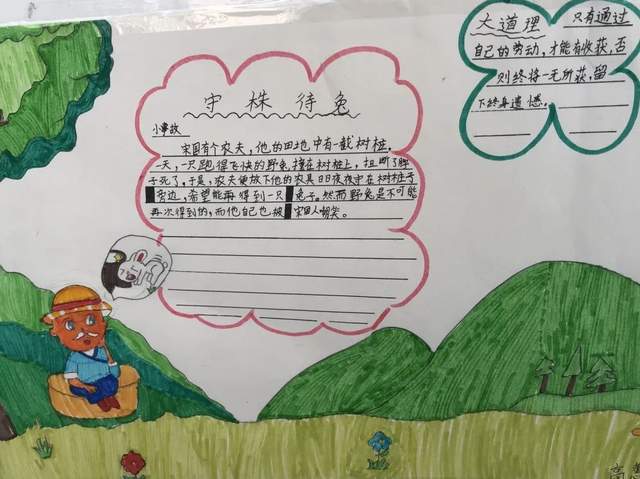 守株待兔
小事故
宋国有个农夫，他的田地中有一截树桩。
一天，一只跑得飞快的野兔撞在树桩上，扭断了脖
子死了。于是，农夫便放下他的农具日日夜夜守在树桩子
旁边，希望能再得到一只兔子。然而野兔是不可能
再次得到的，而他自己也被宋国人嘲笑。
大道理
只有通过
自己的劳动，才能有收获，否
则终将一无所获，留
下终身遗憾。